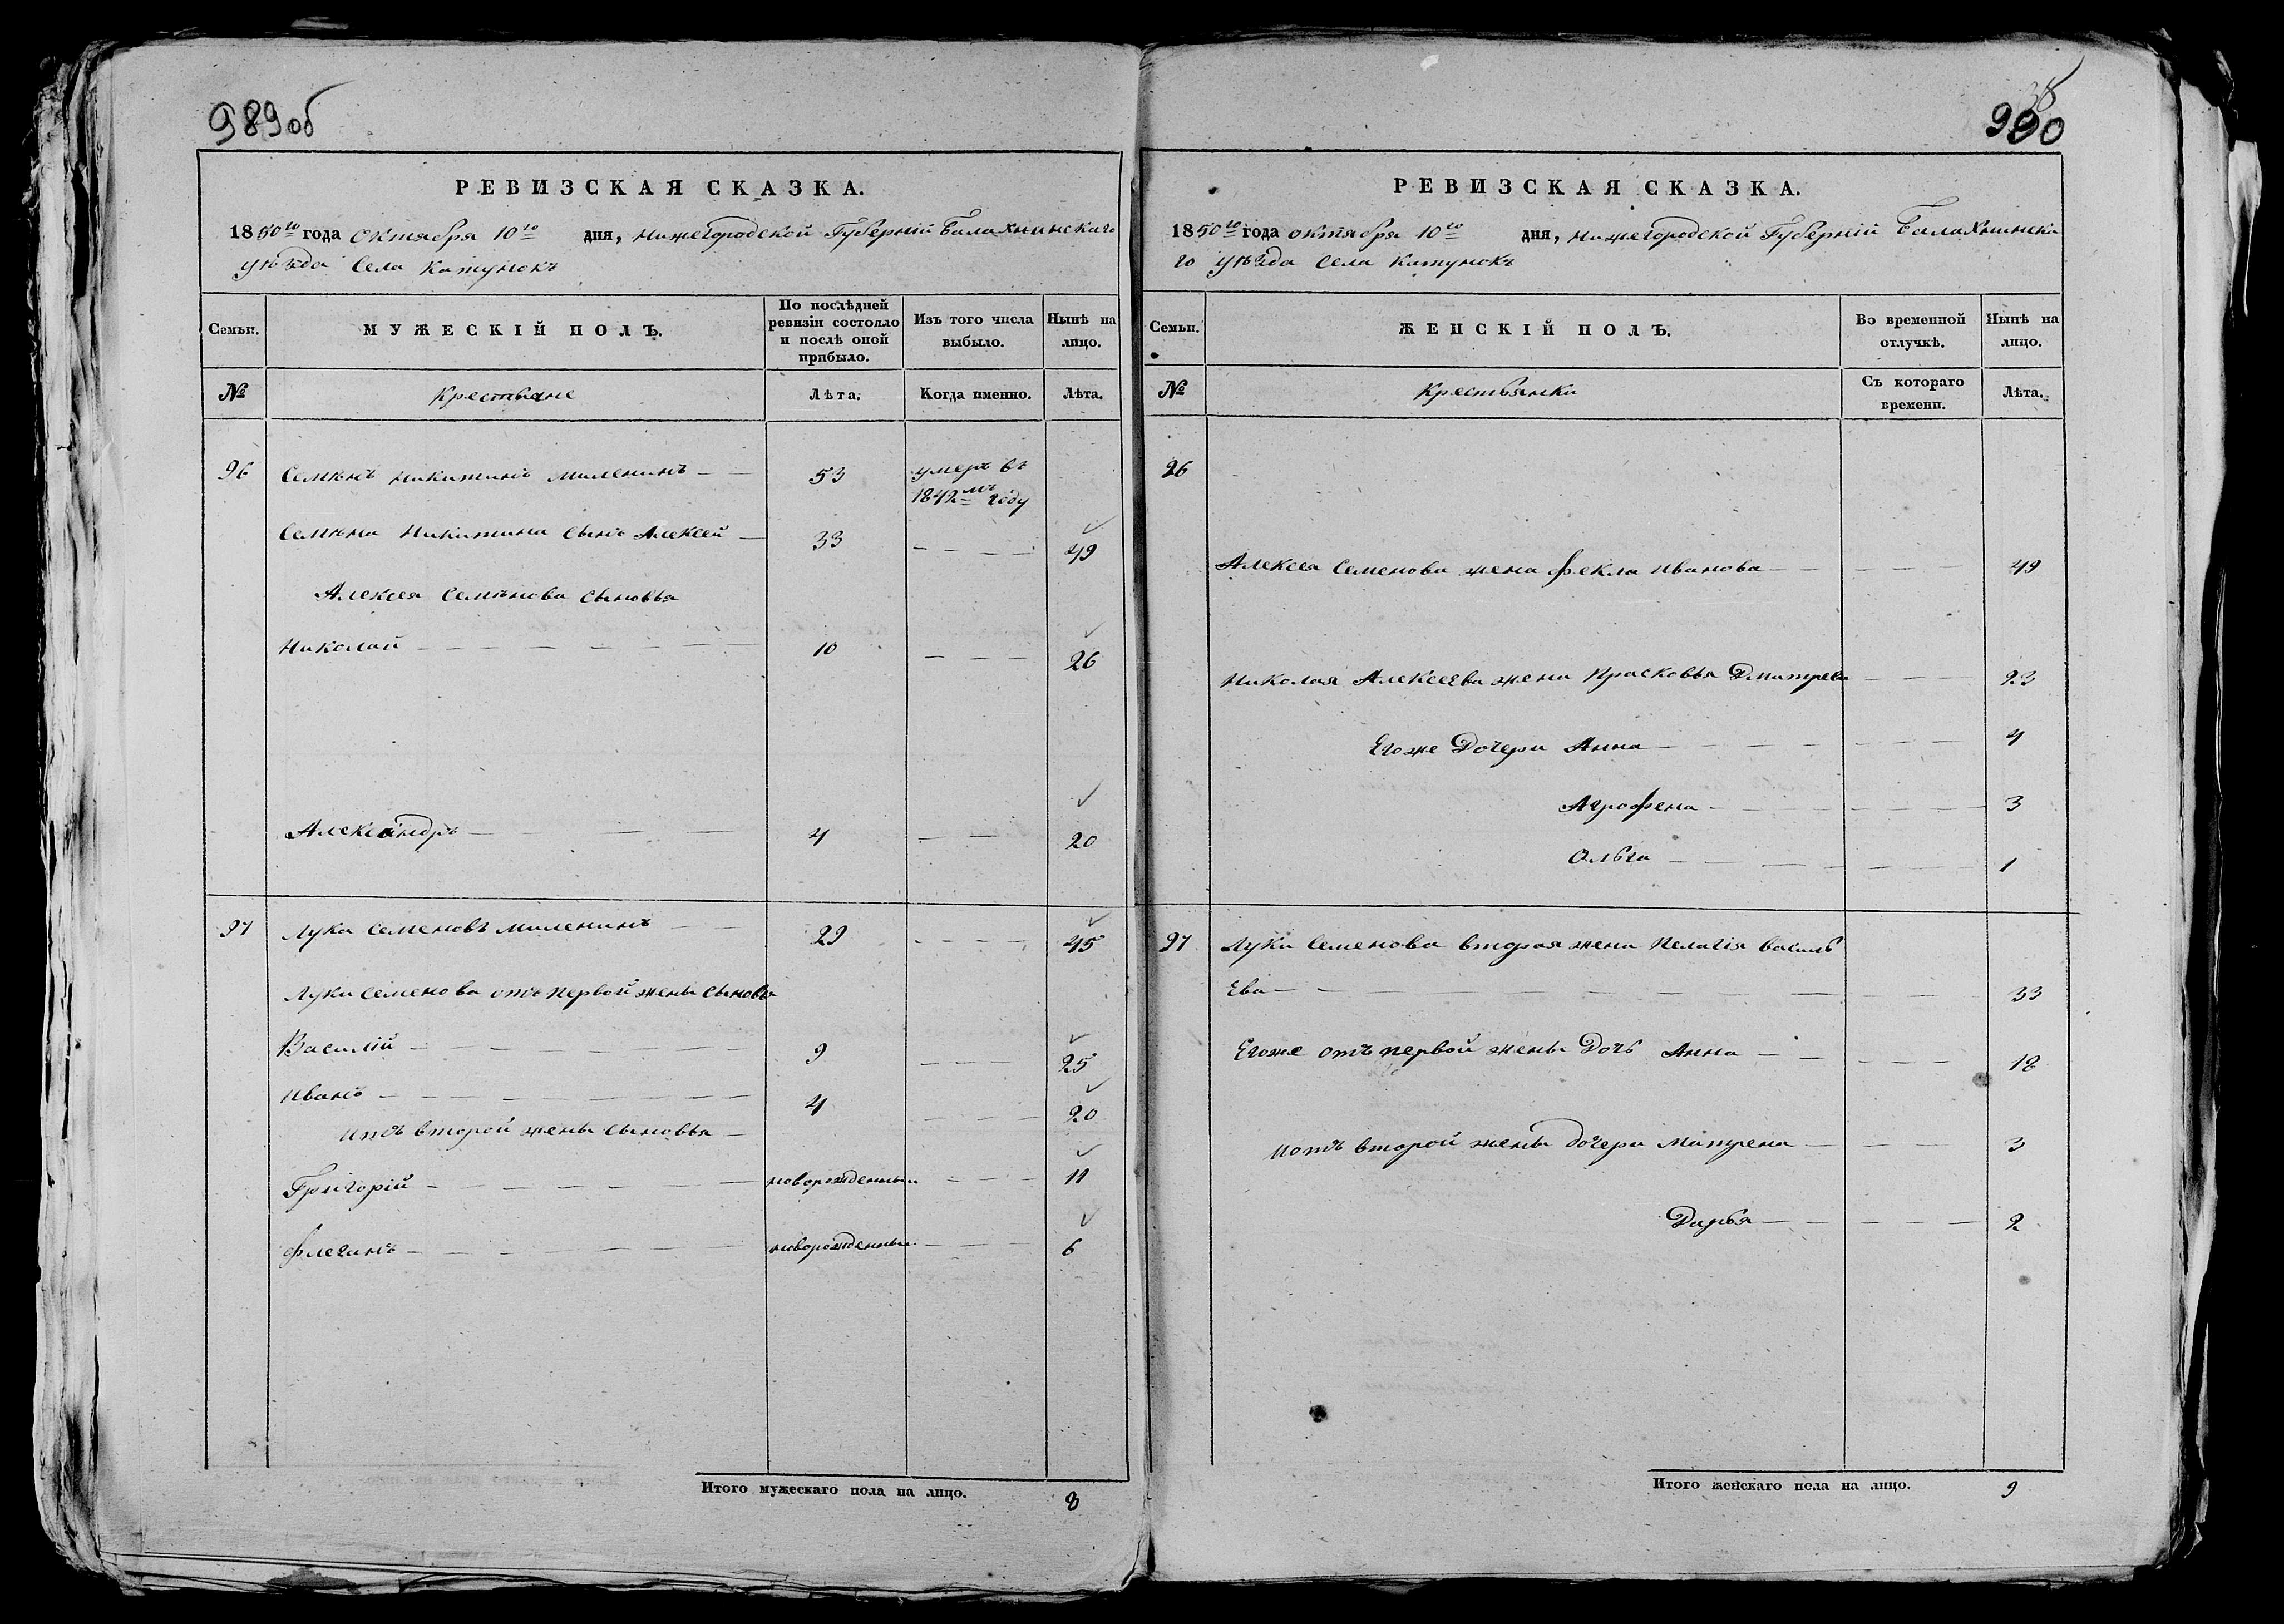 989об
РЕВИЗСКАЯ СКАЗКА.
1850го года Октября 10го дня, Нижегородской Губерніи Балахнинскаго
уѣзда Села Катунокъ
Семьи.
МУЖЕСКІЙ ПОЛЪ.
По послѣдней ревизіи состояло и послѣ оной прибыло.
Изъ того числа выбыло.
Нынѣ на лицо.
№
Крестьяне
Лѣта.
Когда именно.
Лѣта.
96 Семенъ Никитинъ Миленинъ — — 53 умеръ въ
1842мъ году
Семена Никитина сынъ Алексей — 33 — — — — 49
Алексея Семенова сыновья
Николай — — — — — — — 10 — — — 26
Александръ — — — — 4 — — 20
97 Лука Семеновъ Миленинъ — — 29 — — — — 45
Луки Семенова отъ первой жены сыновья
Василій — — — — — 9 — — — 25
Иванъ — — — — — — — 4 — — — 20
Иотъ второй жены сыновья —
Григорій — — — — — — — новорожденный — — — 11
Флегинъ — — — — — — — новорожденный — — — 6
Итого мужескаго пола на лицо. 8
990
РЕВИЗСКАЯ СКАЗКА.
1850го года октября 10го дня, Нижегородской Губерніи Балахнинска
го уѣзда Села Катунокъ
Семьи.
ЖЕНСКІЙ ПОЛЪ.
Во временной отлучкѣ.
Нынѣ на лицо.
№
Крестьянки
Съ котораго времени.
Лѣта.
96
Алексея Семенова жена Фекла Иванова — — — — — 49
Николая Алексеева жена Прасковья Дмитрева — — — 23
Егоже Дочери Анна — — — — — — — 4
Агрофена — — — — — — — 3
Ольга — — — — — — — 1
97 Луки Семенова вторая жена Пелагія Василь
Ева — — — — — — — — — — — 33
Егоже отъ первой жены Дочь Анна — — — — — 18
Иотъ второй жены дочери Матрена — — — — 3
Дарья — — — — — — 2
Итого женскаго пола на лицо. 9